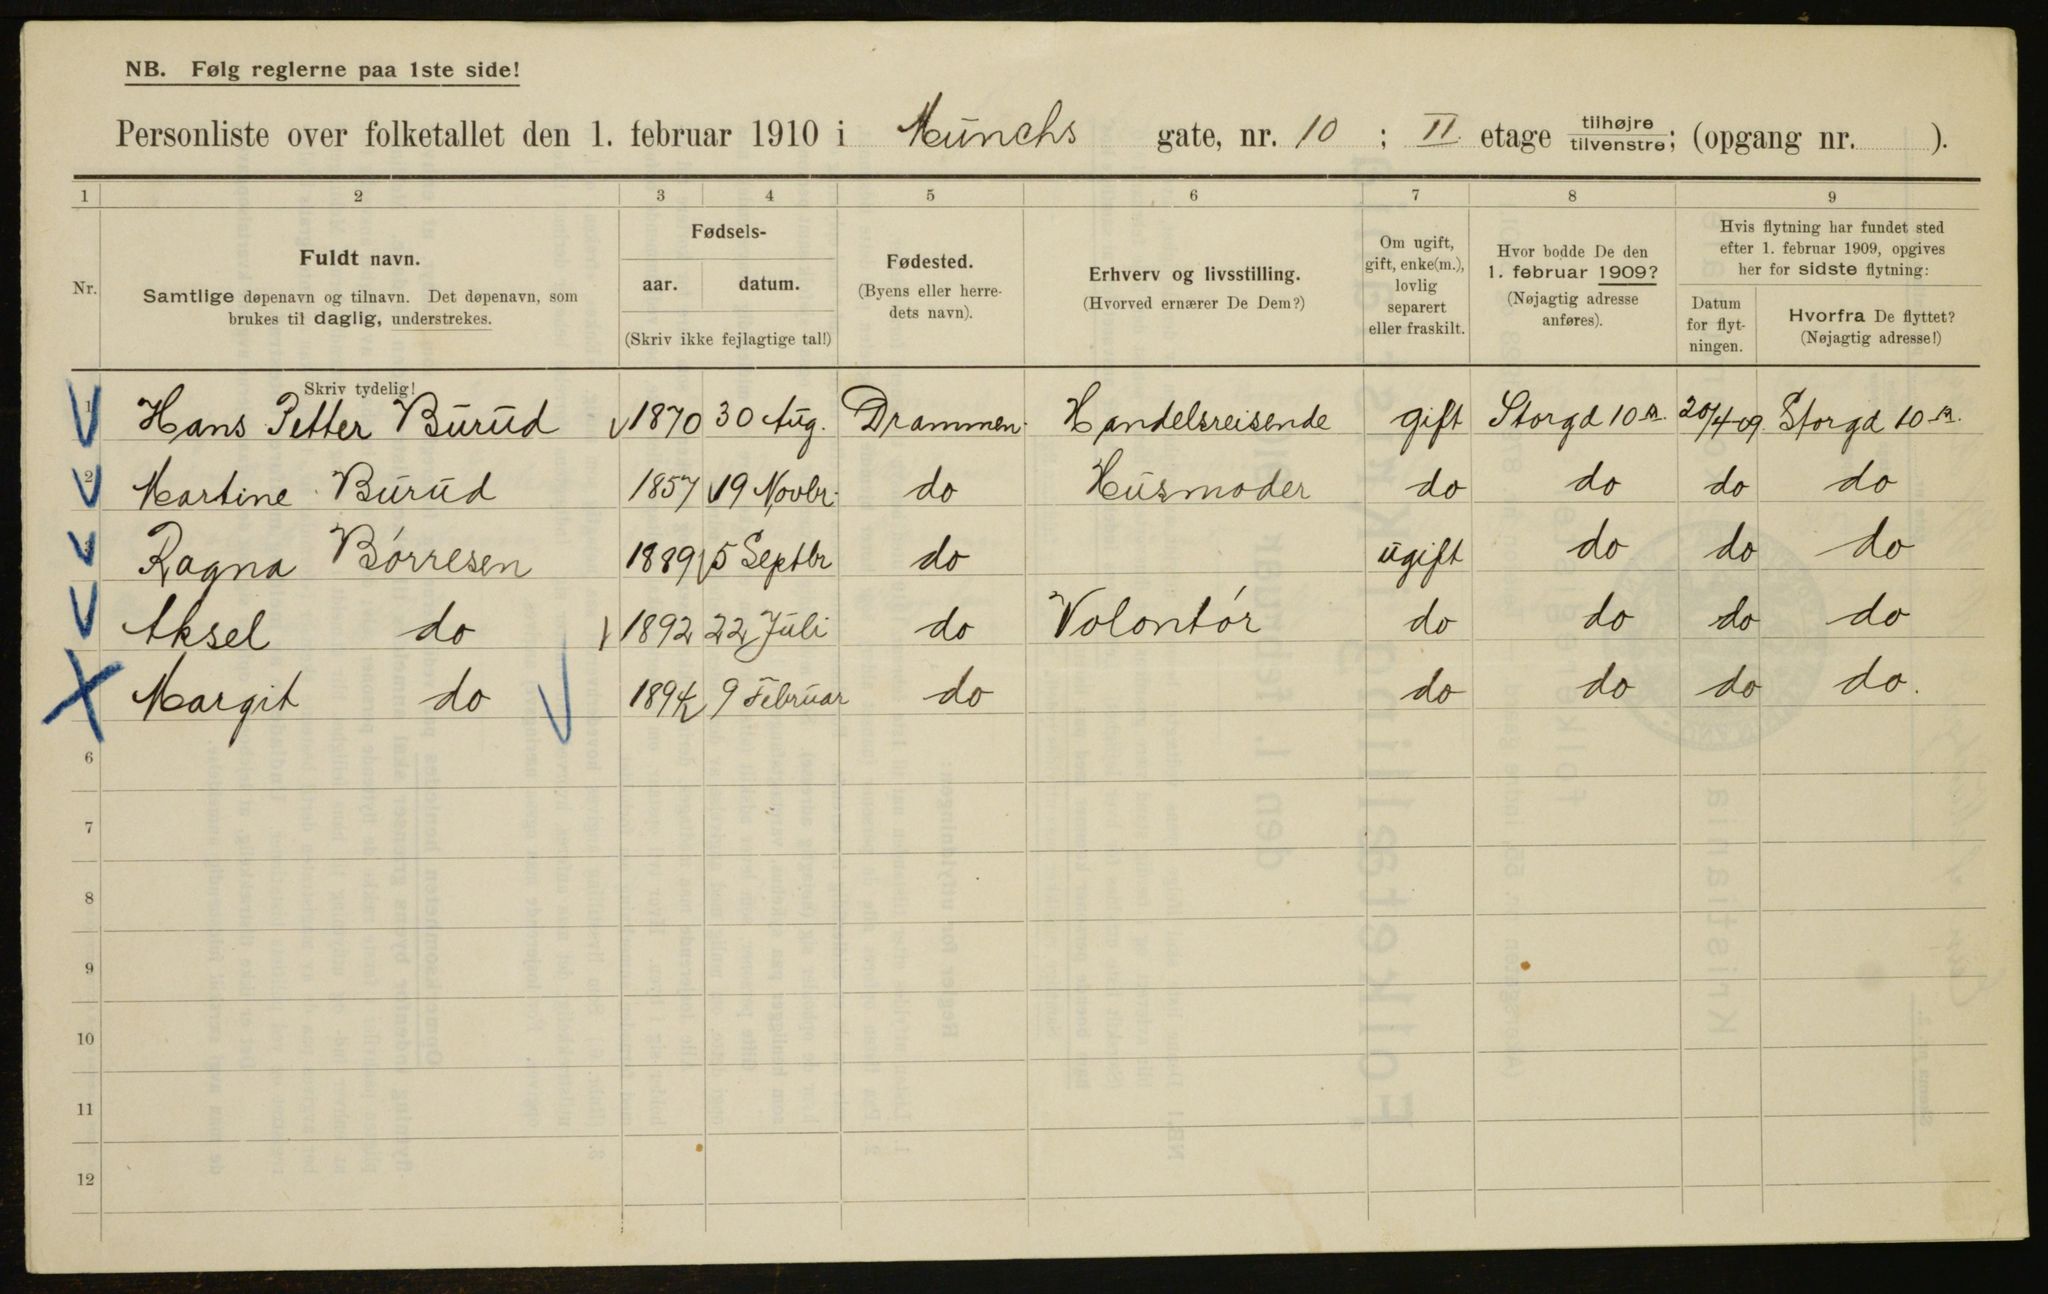 NB. Følg reglerne paa 1ste side!
Personliste over folketallet den 1. februar 1910 i Munchs gate, nr. 10 ; II etage tilhøjre tilvenstre; (opgang nr. ).
1 2 3 4 5 6 7 8 9
Nr.
Fuldt navn.
Samtlige døpenavn og tilnavn. Det døpenavn, som
brukes til daglig, understrekes.
Skriv tydelig!
Fødsels-
aar. datum.
(Skriv ikke fejlagtige tal!)
Fødested.
(Byens eller herre-
dets navn).
Erhverv og livsstilling.
(Hvorved ernærer De Dem?)
Om ugift,
gift, enke(m.),
lovlig
separert
eller fraskilt.
Hvor bodde De den
1. februar 1909?
(Nøjagtig adresse
anføres).
Hvis flytning har fundet sted
efter 1. februar 1909, opgives
her for sidste flytning:
Datum
for flyt-
ningen.
Hvorfra De flyttet?
(Nøjagtig adresse!)
1 Hans Petter Burud 1870 30 Aug. Drammen. Handelsreisende gift Storgd 10 20/4-09. Storgd 10
2 Martine Burud 1857 19 Novbr. do Husmoder do do do do
3 Ragna Børresen 1889 5 Septbr do ugift do do do
Aksel do 1892 22 Juli do Volontør do do do do
Margit do 1894 9 Februar do do do do do.
6
7
8
9
10
11
12